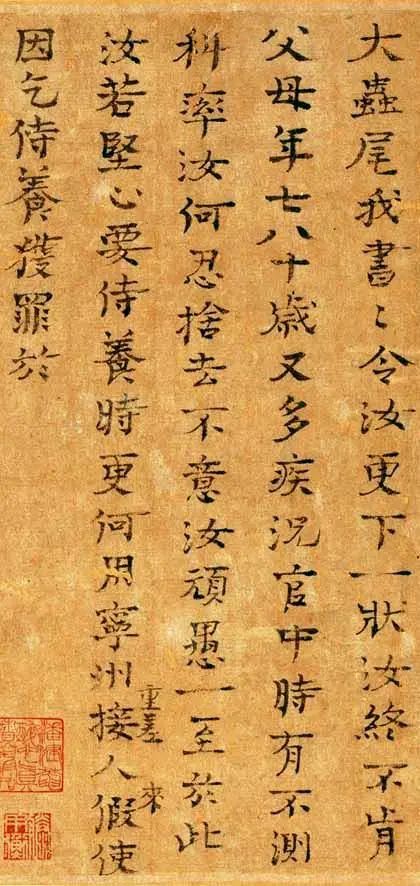 大蟲尾我書〻令汝更下一狀汝終不肯
父母年七八十歲又多疾況官中時有不測
科率汝何忍捨去不意汝頑愚一至於此
重差來
汝若堅心要侍養時更何用寧州接人假使
因乞侍養獲罪於